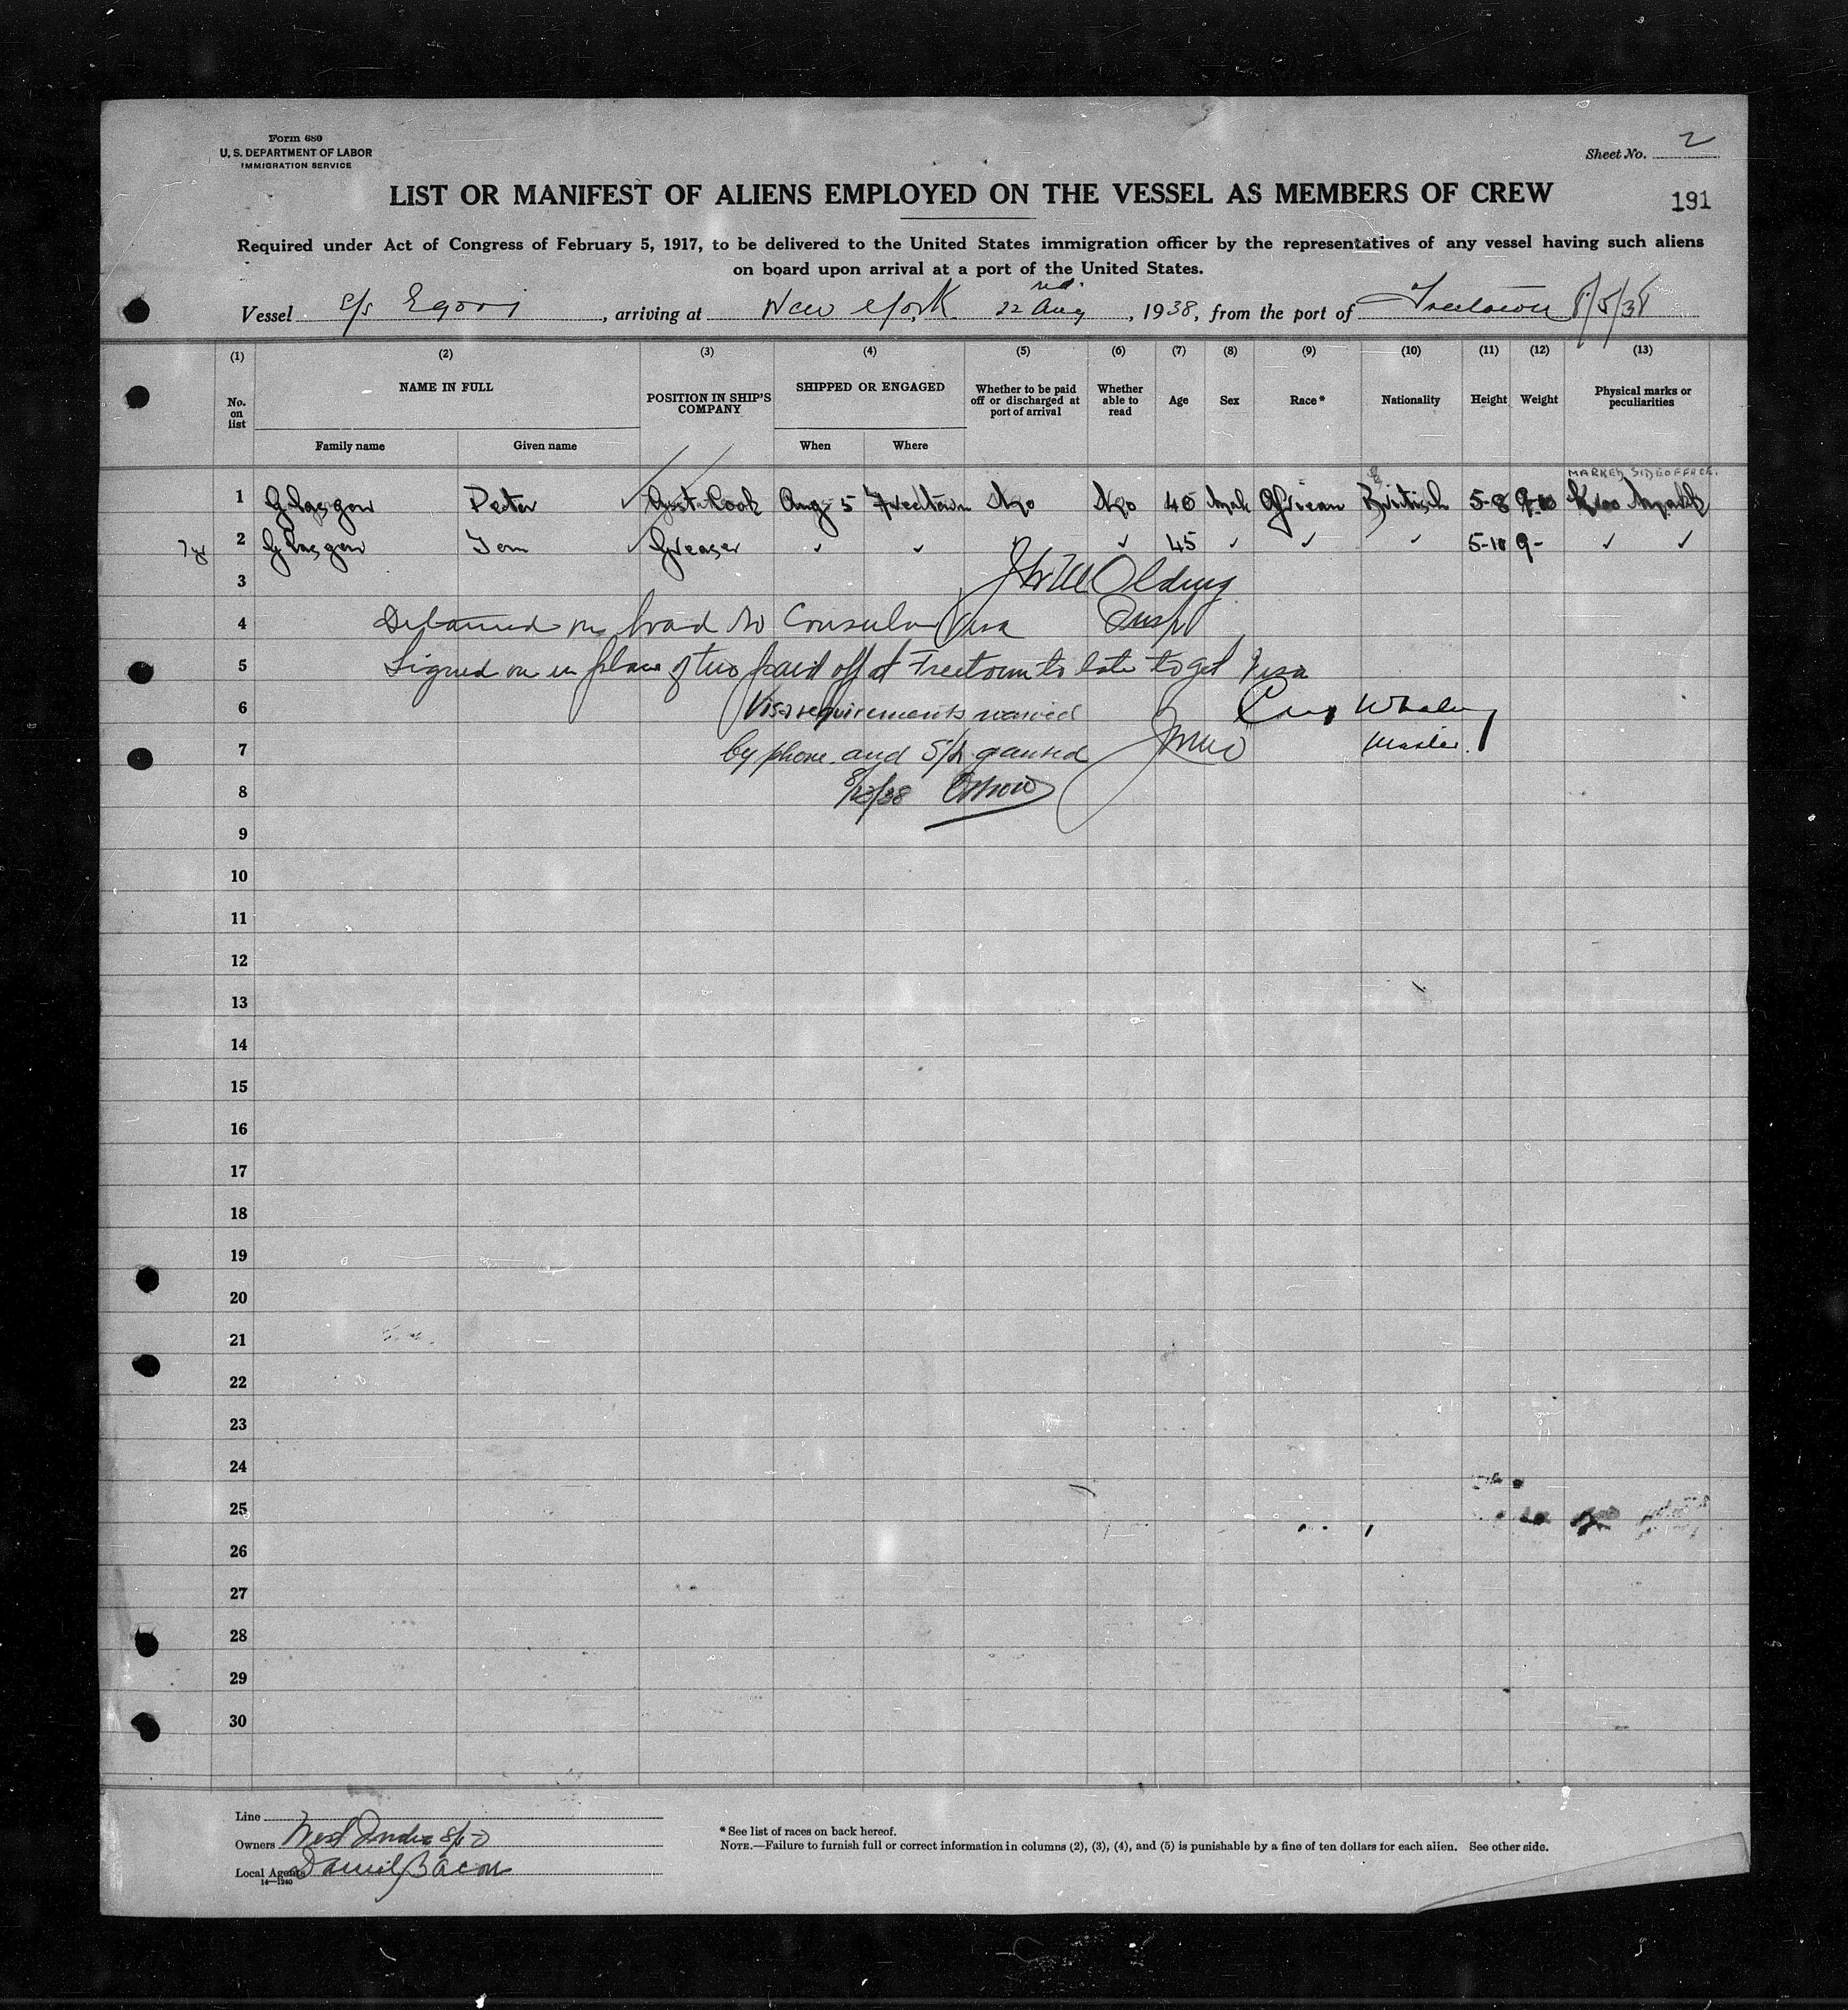 Form 680
U. S. DEPARTMENT OF LABOR
IMMIGRATION SERVICE
Sheet No. 2
LIST OR MANIFEST OF ALIENS EMPLOYED ON THE VESSEL AS MEMBERS OF CREW
191
Required under Act of Congress of February 5, 1917, to be delivered to the United States immigration officer by the representatives of any vessel having such aliens
on board upon arrival at a port of the United States.
Vessel S/S Egori, arriving at New York 22nd. Aug, 1938, from the port of Freetown 8/5/38
(1) (2) (3) (4) (5) (6) (7) (8) (9) (10) (11) (12) (13)
No. on list NAME IN FULL POSITION IN SHIP'S COMPANY SHIPPED OR ENGAGED Whether to be paid off or discharged at port of arrival Whether able to read Age Sex Race* Nationality Height Weight Physical marks or peculiarities
Family name Given name When Where
MARKED SIDE OF FACE.
1 Glasgow Peter ✓ Asst. Cook Aug 5 Freetown No No 40 Male African British 5-8 9-10 Kroo Mark
2 Glasgow Tom ✓ Greaser ✓ ✓ ✓ 45 ✓ ✓ ✓ 5-10 9- ✓ ✓
3 Olding
4 Detained on board no Consular Visa Insp
5 Signed on in place of two paid off at Freetown to late to get Visa
6 Visa requirements waived
7 by phone and S/L granted Master.
8 38
9
10
11
12
13
14
15
16
17
18
19
20
21
22
23
24
25
26
27
28
29
30
Line
Owners West Indies
Local Agents Daniel Bacon
14—1240
* See list of races on back hereof.
NOTE.—Failure to furnish full or correct information in columns (2), (3), (4), and (5) is punishable by a fine of ten dollars for each alien. See other side.